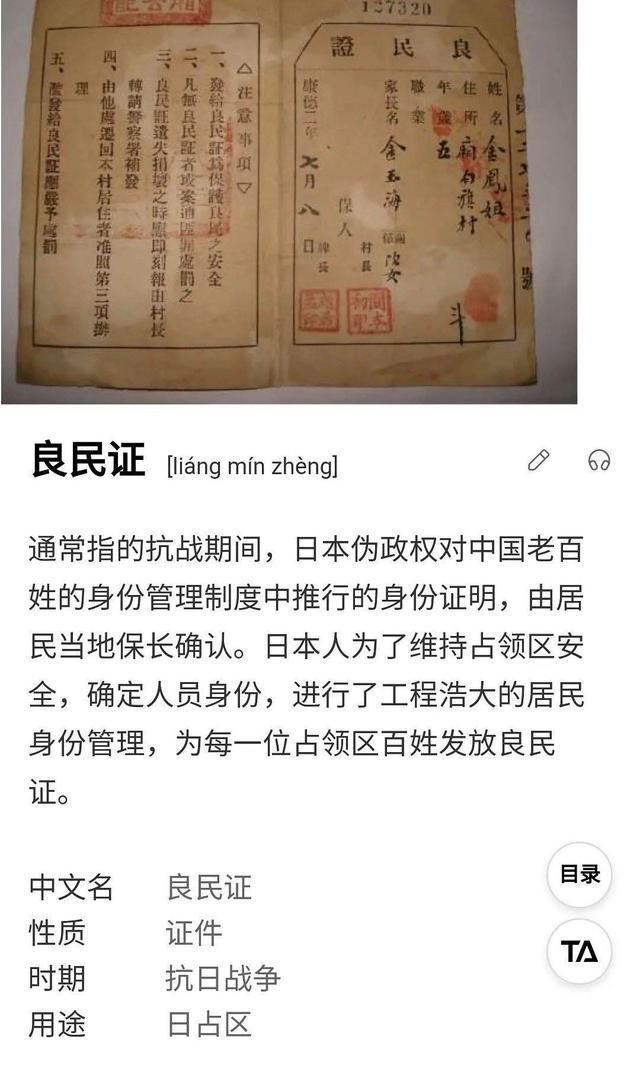 127320
良民證
姓名 金鳳姐
住所
年歲 五
職業
家長名 金玉海
保人
村長
牌長
康德二年七月八日
△注意事項▽
一、發給良民証爲保護良民之安全
二、凡無良民証者按案通匪罪處罰之
三、良民証遺失損壞之時應即刻報由村長
轉請警察署補發
四、由他處遷回本村居住者准照第三項辦
理
五、濫發給良民証應嚴予處罰
良民证 [liáng mín zhèng]
通常指的抗战期间，日本伪政权对中国老百
姓的身份管理制度中推行的身份证明，由居
民当地保长确认。日本人为了维持占领区安
全，确定人员身份，进行了工程浩大的居民
身份管理，为每一位占领区百姓发放良民
证。
目录
中文名 良民证
性质 证件
TA
时期 抗日战争
用途 日占区